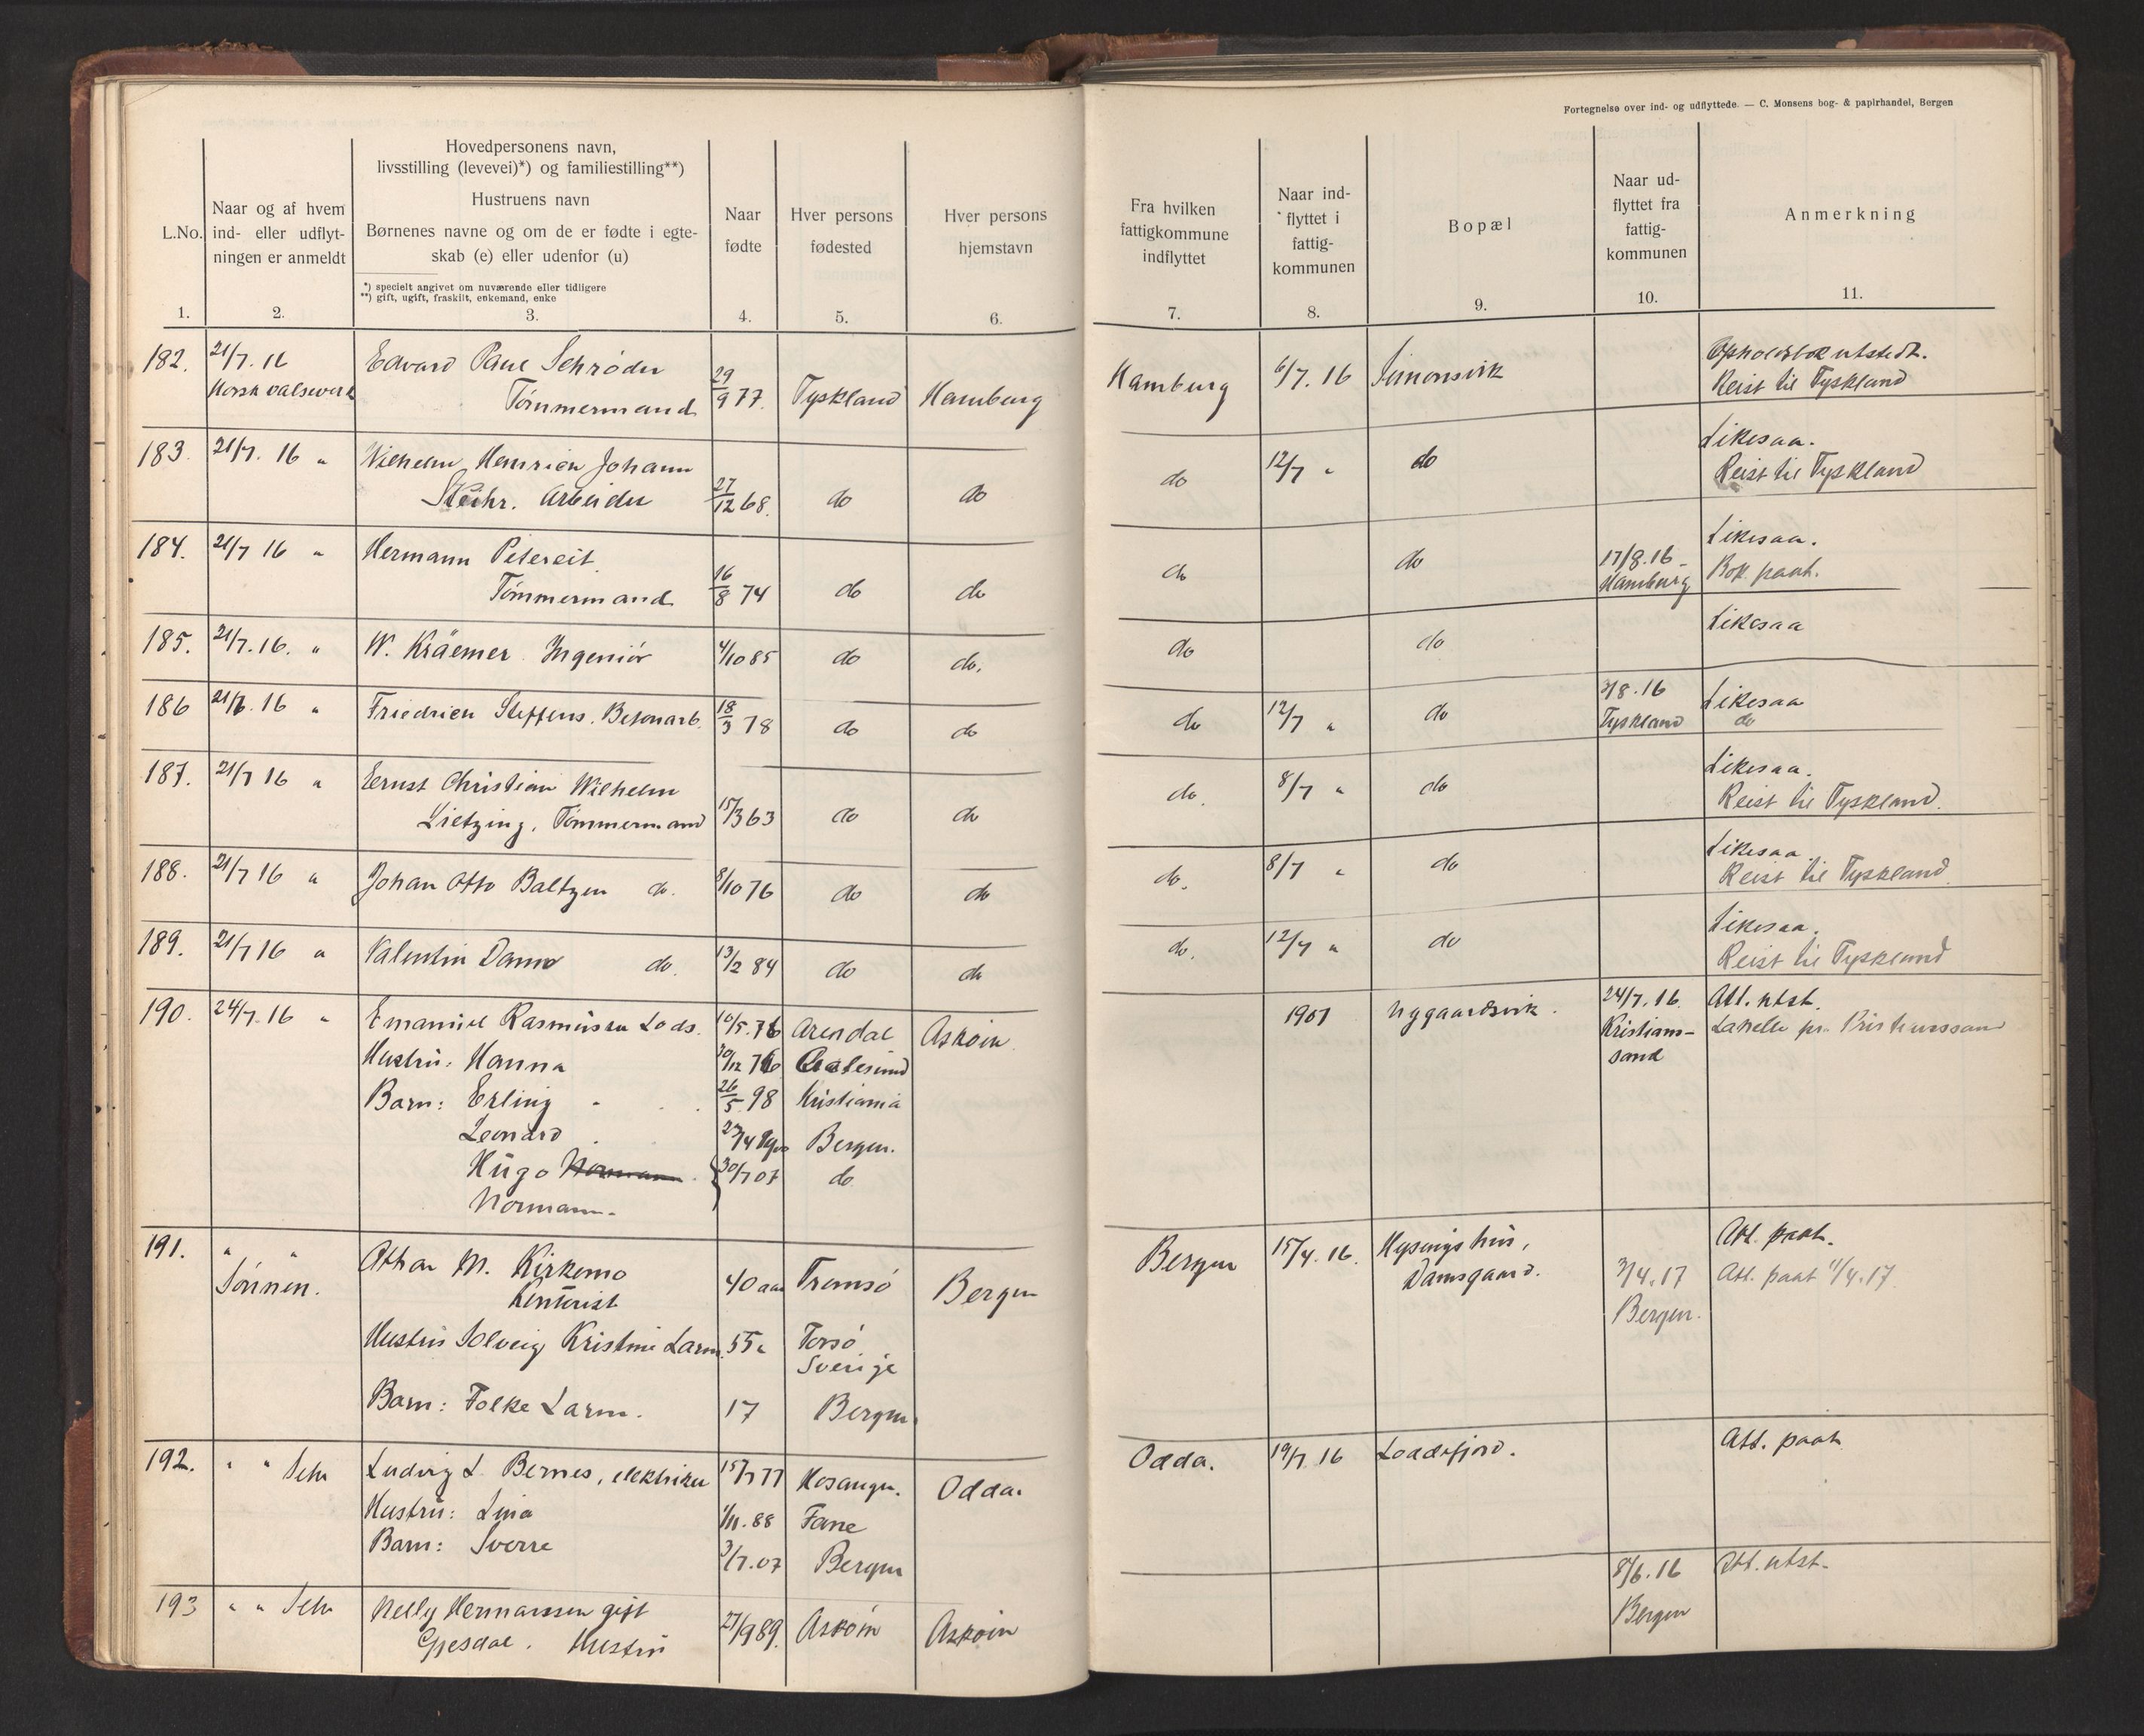 Fortegnelse over ind- og udflyttede. — C. Monsens bog- & papirhandel, Bergen
L.No.
1.
Naar og af hvem
ind- eller udflyt-
ningen er anmeldt
2.
Hovedpersonens navn,
livsstilling (levevei)*) og familiestilling**)
Hustruens navn
Børnenes navne og om de er fødte i egte-
skab (e) eller udenfor (u)
*) specielt angivet om nuværende eller tidligere
**) gift, ugift, fraskilt, enkemand, enke
3.
Naar
fødte
4.
Hver persons
fødested
5.
Hver persons
hjemstavn
6.
Fra hvilken
fattigkommune
indflyttet
7.
Naar ind-
flyttet i
fattig-
kommunen
8.
Bopæl
9.
Naar ud-
flyttet fra
fattig-
kommunen
10.
Anmerkning
11.
182. 21/7. 16 Edvard Paul Schrøder
Norsk valseverk Tømmermand 29/9 77. Tyskland Hamburg Hamburg 6/7. 16 Simonsvik Opholdsbok utstedt.
Reist til Tyskland
183. 21/7. 16 " Wilhelm Heinrich Johann
Stühr. Arbeider 27/12 68. do do do 12/7 " do Likesaa.
Reist til Tyskland
184. 21/7 16 " Hermann Petereit
Tømmermand 16/8 74 do do do do 17/8. 16 - Likesaa.
Hamburg Bok paat.
185. 21/7. 16. " W. Kräemer Ingeniør 4/10 85 do do. do do Likesaa
186 21/7. 16 " Friedrich Steffens. Betonarb. 18/3 78 do do do 12/7 " do 3/8. 16 Likesaa
Tyskland do
187. 21/7 16 " Ernst Christian Wilhelm
Lietzing, Tømmermand 15/3 63 do do do. 8/7 " do Likesaa.
Reist til Tyskland.
188. 21/7 16 " Johan Otto Baltzen do. 8/10 76 do do do. 8/7 " do Likesaa.
Reist til Tyskland.
189. 21/7 16 " Valentin Damo do. 13/2 84 do do do. 12/7 " do Likesaa.
Reist til Tyskland
190. 24/7. 16 " Emanuel Rasmussen Lods. 10/5. 76 Arendal Askøin 1901 Nygaardsvik. 24/7. 16. Att. utst.
Kristian-
sand
Hustru: Hanna 30/12 76 Aalesund
Barn: Erling 26/5 98 Kristiania
Leonard Bergen.
Hugo Norman 30/7 07 do
Normann.
191. " " Othar M. Kirkemo
Sønnen. Kontorist 40 aar Tromsø Bergen Bergen 15/4. 16. Hysingshus, Att. paat.
Damsgaard. 3/4. 17 Att. paat 11/4. 17
Bergen.
Hustru Solveig Kristine Larm 55 " Torsø
Sverige
Barn: Folke Larm. 17 Bergen.
192. " " Selv Ludvig L. Bernes, elektriker 15/7 77 Hosanger. Odda. Odda. 19/7 16 Loddefjord. Att. paat
Hustru: Lina 1/11. 88 Fane
Barn: Sverre 3/7. 07 Bergen
193 " " Selv Nelly Hermanssen gift
Gjesdal. Hustru 27/9 89. Askøin Askøin 8/6. 16 Att. utst.
Bergen